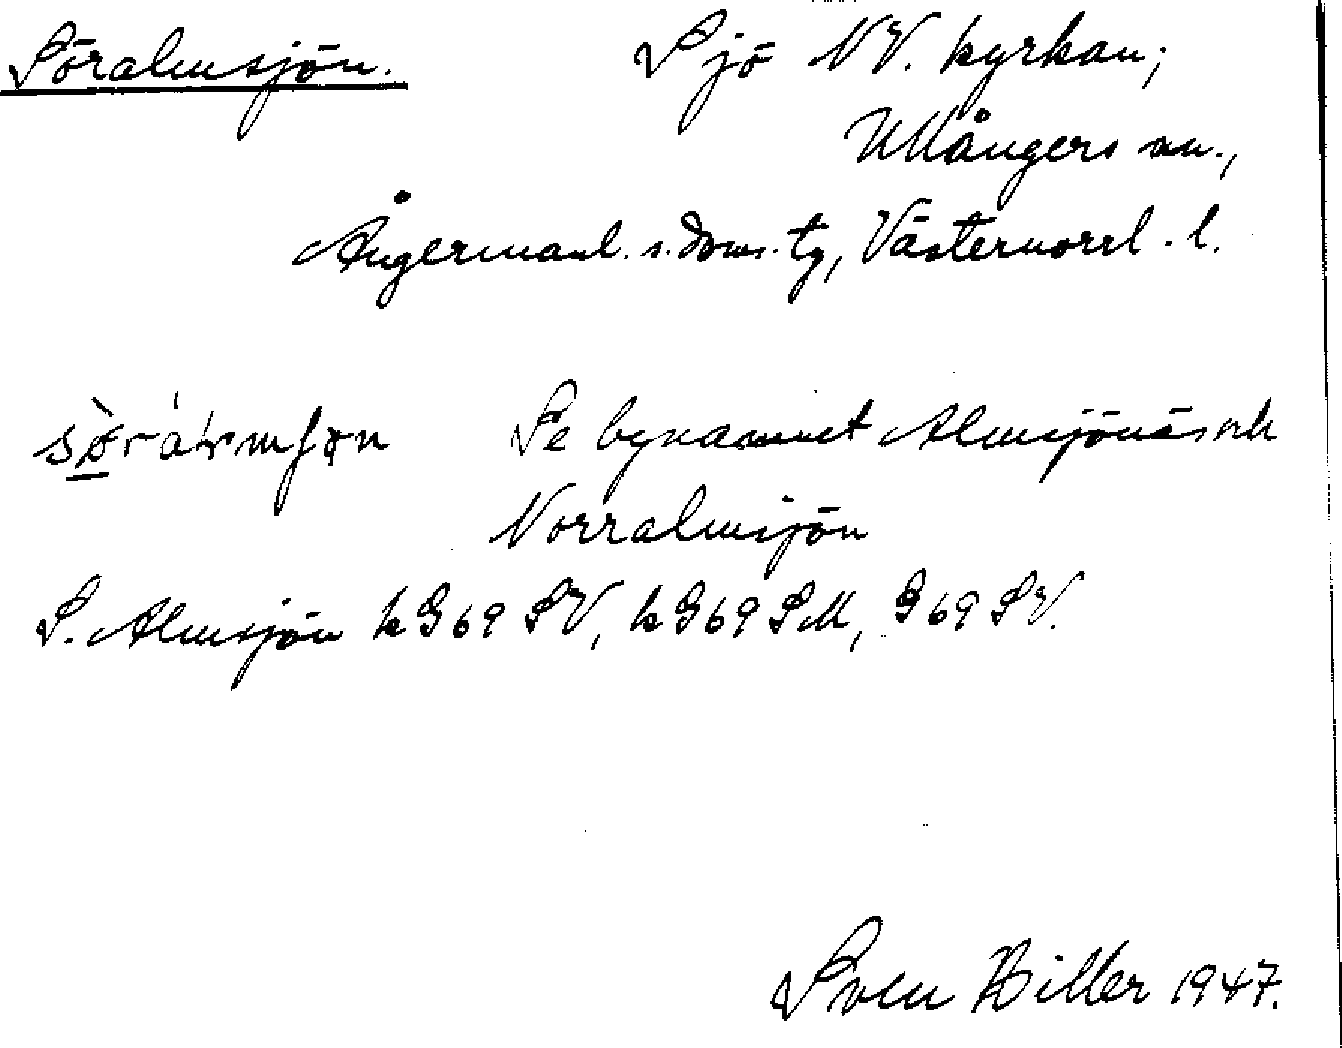 Söralmsjön. Sjö NV. kyrkan;
Ullångers sn.,
Ångermanl. s. doms. tg, Västernorrl. l.
Se bynamnet Almsjönäs och
Norralmsjön
S. Almsjön k G 69 SV, k G 69 SM, G 69 SV.
Sven Hiller 1947.